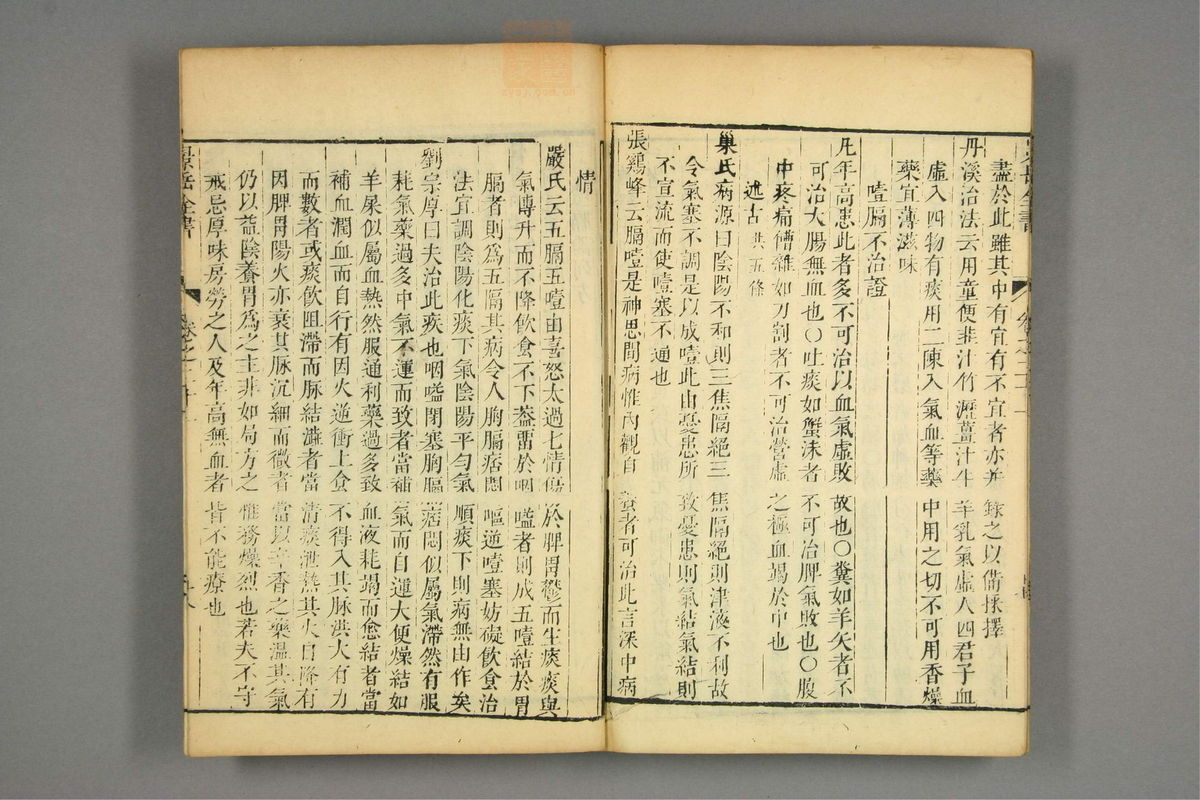 盡於此雖其中有宜有不宜者亦并錄之以備採擇
丹溪治法云用童便韭汁竹瀝薑汁牛羊乳氣虛入四君子血
虛入四物有痰用二陳入氣血等藥中用之切不可用香燥
藥宜薄滋味
噎膈不治證
凡年高患此者多不可治以血氣虛敗故也○糞如羊矢者不
可治大腸無血也○吐痰如蟹沫者不可治脾氣敗也○腹
中疼痛嘈雜如刀割者不可治營虛之極血竭於中也
述古共五條
巢氏病源曰陰陽不和則三焦隔絕三焦隔絕則津液不利故
令氣塞不調是以成噎此由憂恚所致憂恚則氣結氣結則
不宣流而使噎塞不通也
張鷄峰云膈噎是神思間病惟內觀自養者可治此言深中病
情
嚴氏云五膈五噎由喜怒太過七情傷於脾胃鬱而生痰痰與
氣傳升而不降飲食不下蓋留於咽嗌者則成五噎結於胃
膈者則爲五隔其病令人胸膈痞悶嘔逆噎塞妨礙飲食治
法宜調陰陽化痰下氣陰陽平勻氣順痰下則病無由作矣
劉宗厚曰夫治此疾也咽嗌閉塞胸膈痞悶似屬氣滯然有服
耗氣藥過多中氣不運而致者當補氣而自運大便燥結如
羊屎似屬血熱然服通利藥過多致血液耗竭而愈結者當
補血潤血而自行有因火逆衝上食不得入其脉洪大有力
而數者或痰飲阻滯而脉結澁者當清痰泄熱其火自降有
因脾胃陽火亦衰其脉沉細而微者當以辛香之藥溫其氣
仍以益陰養胃爲之主非如局方之惟務燥烈也若夫不守
戒忌厚味房勞之人及年高無血者皆不能療也
景岳全書
卷之二十一